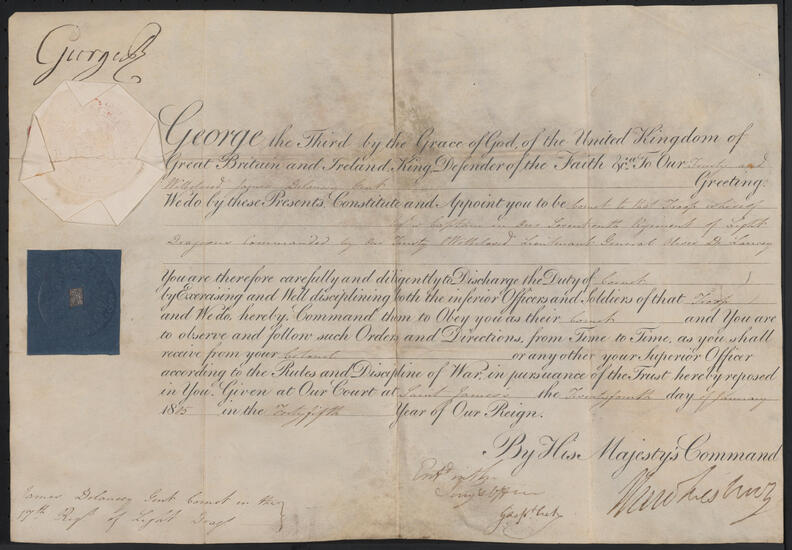 George R
George the Third by the Grace of God, of the United Kingdom of
Great Britain and Ireland, King, Defender of the Faith &ca. To Our Trusty and
Welbeloved James Delancey Gent Greeting:
We do by these Presents, Constitute and Appoint you to be Cornet to that Troop whereof
is Captain in Our Seventeenth Regiment of Light
Dragoons Commanded by Our Trusty & Welbeloved Lieutenant General Oliver De Lancey
You are therefore carefully and diligently to Discharge the Duty of Cornet
by Exercising and Well disciplining both the inferior Officers and Soldiers of that Troop
and We do hereby Command them to Obey you as their Cornet and You are
to observe and follow such Orders and Directions, from Time to Time, as you shall
receive from your Colonel or any other your Superior Officer
according to the Rules and Discipline of War, in pursuance of the Trust hereby reposed
in You. Given at Our Court at Saint James's the Twentyfourth day of January
1805 in the Fortyfifth Year of Our Reign.
By His Majesty's Command
Hawkesbury
Entd
James Delancey Gent Cornet in the
17th Regt of Light Drags